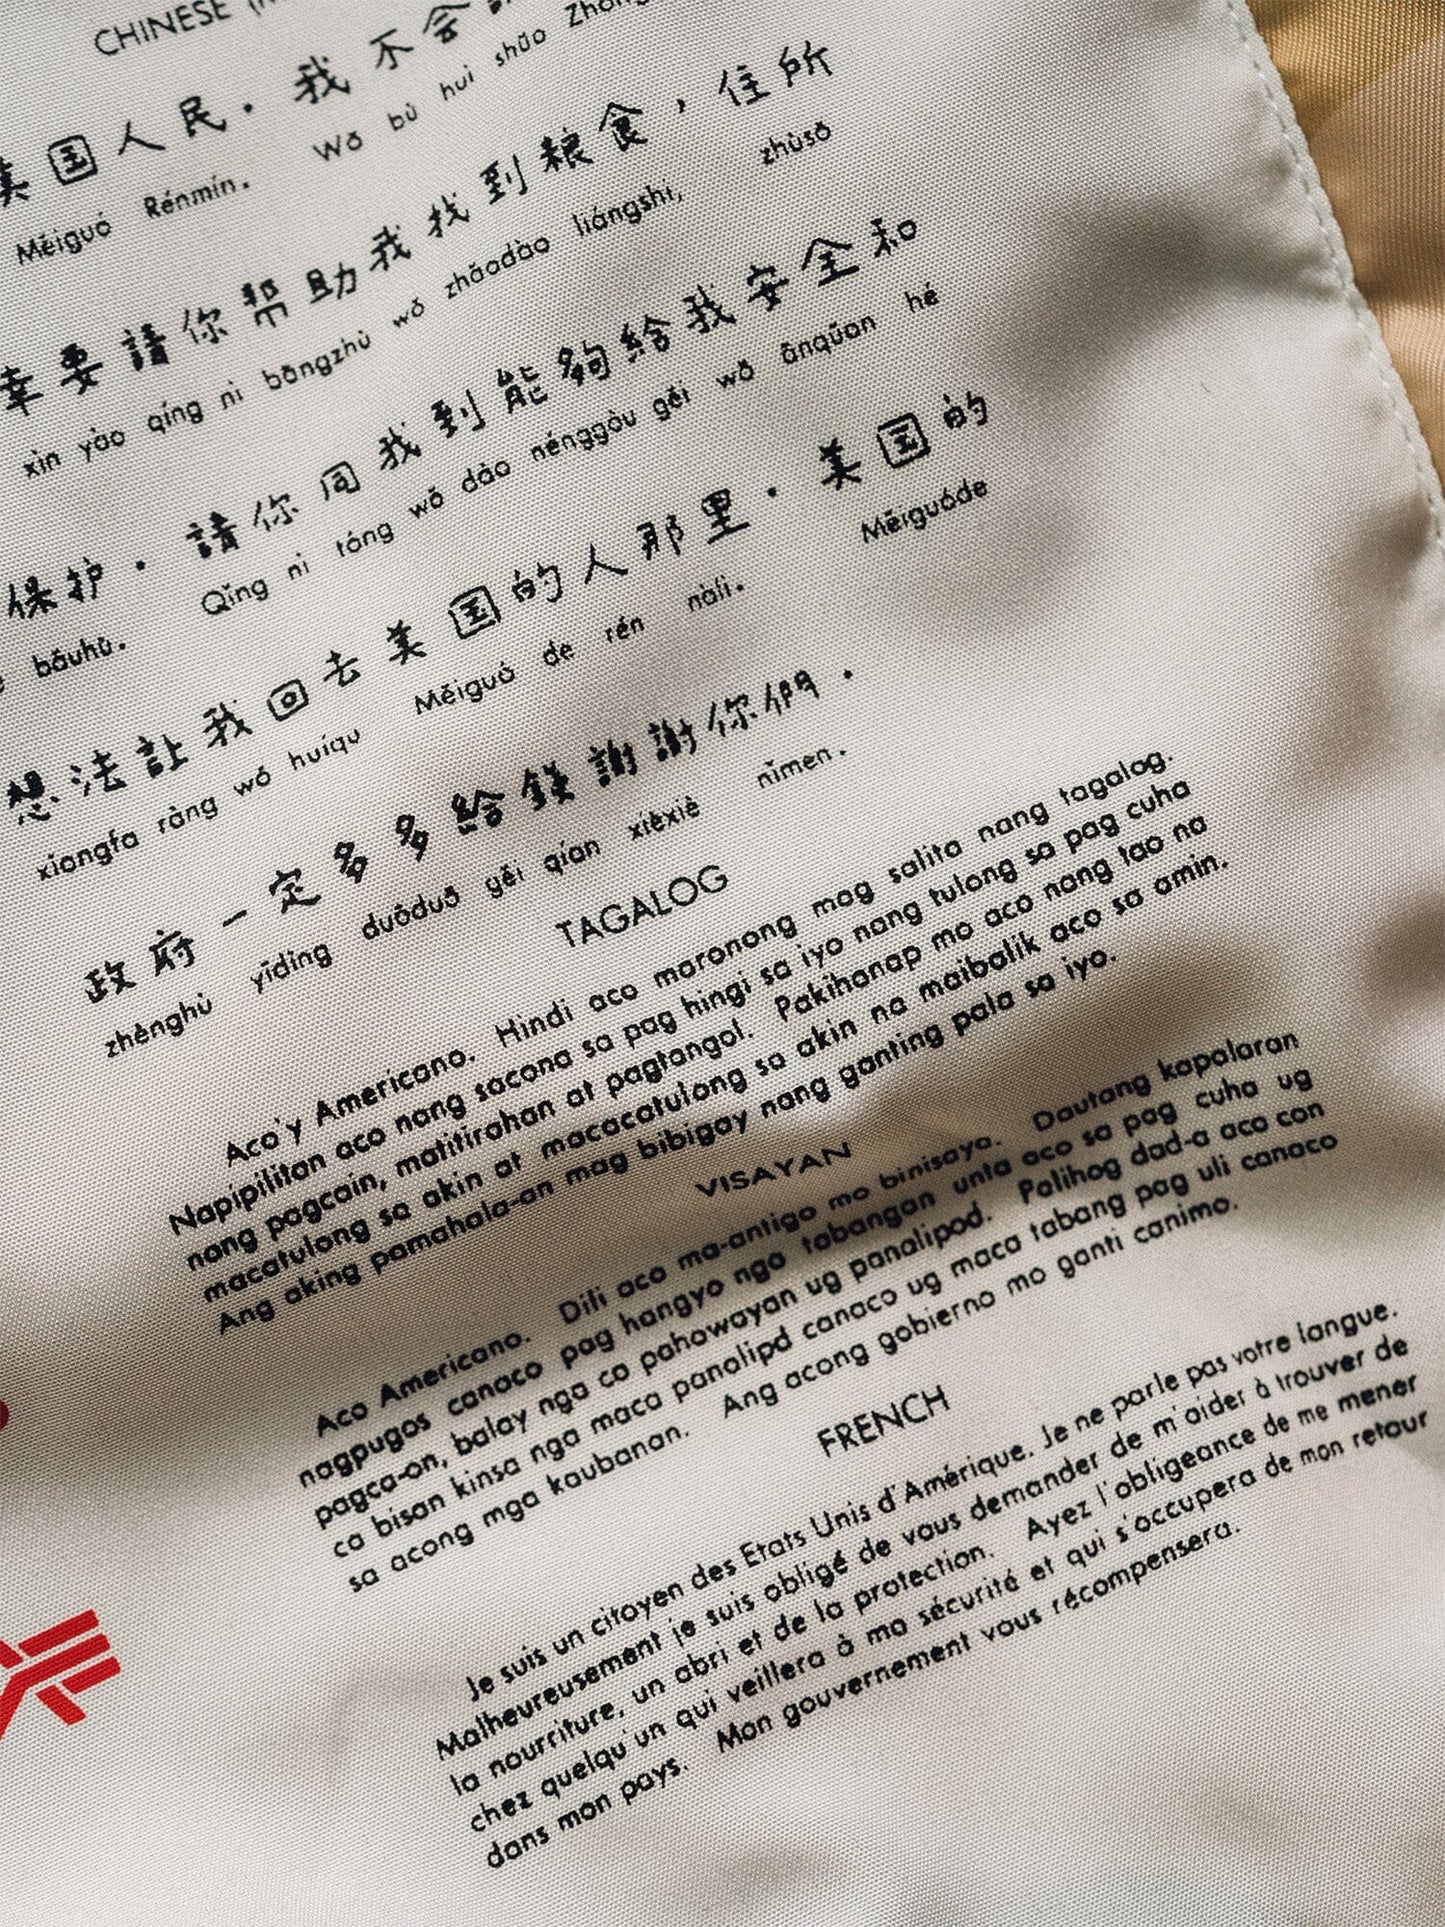 CHINESE
美国人民．我不会
Měiguó Rénmín. Wǒ bù huì shūo
幸要請你帮助我找到粮食，住所
xìn yào qíng nì bāngzhù wǒ zhǎodào liángshí, zhùsǒ
保护．請你同我到能夠給我安全和
báuhù. Qǐng ni tóng wǒ dào nénggòu gěi wǒ ānqūan hé
想法让我回去美国的人那里．美国的
xiangfa ràng wǒ huíqu Měiguó de rén nàli. Měiguóde
政府一定多多給錢謝謝你們．
zhènghǔ yīdìng duōduō gěi qían xièxiè nǐmen.
TAGALOG
Aco'y Americano. Hindi aco maronong mag salita nang tagalog.
Napipilitan aco nang sacona sa pag hingi sa iyo nang tulong sa pag cuha
nang pagcain, matitirahan at pagtangol. Pakihanap mo aco nang tao na
macatulong sa akin at macacatulong sa akin na maibalik aco sa amin.
Ang aking pamahala-an mag bibigay nang ganting pala sa iyo.
VISAYAN
Aco Americano. Dili aco ma-antigo mo binisaya. Dautang kapalaran
nagpugos canaco pag hangyo nga tabangan unta aco sa pag cuha ug
pagca-on, balay nga ca pahowayan ug panalipod. Palihog dad-a aco con
ca bisan kinsa nga maca panalipd canaco ug maca tabang pag uli canaco
sa acong mga kaubanan. Ang acong gobierno mo ganti canimo.
FRENCH
Je suis un citoyen des Etats Unis d'Amérique. Je ne parle pas votre langue.
Malheureusement je suis obligé de vous demander de m'aider à trouver de
la nourriture, un abri et de la protection. Ayez l'obligeance de me mener
chez quelqu'un qui veillera à ma sécurité et qui s'occupera de mon retour
dans mon pays. Mon gouvernement vous récompensera.